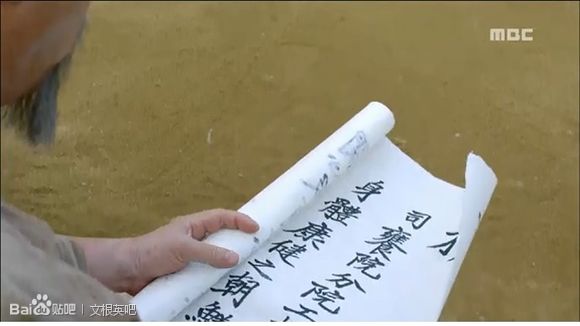 MBC
司饔院分院工
身體康健之朝
Bai 贴吧 | 文根英吧